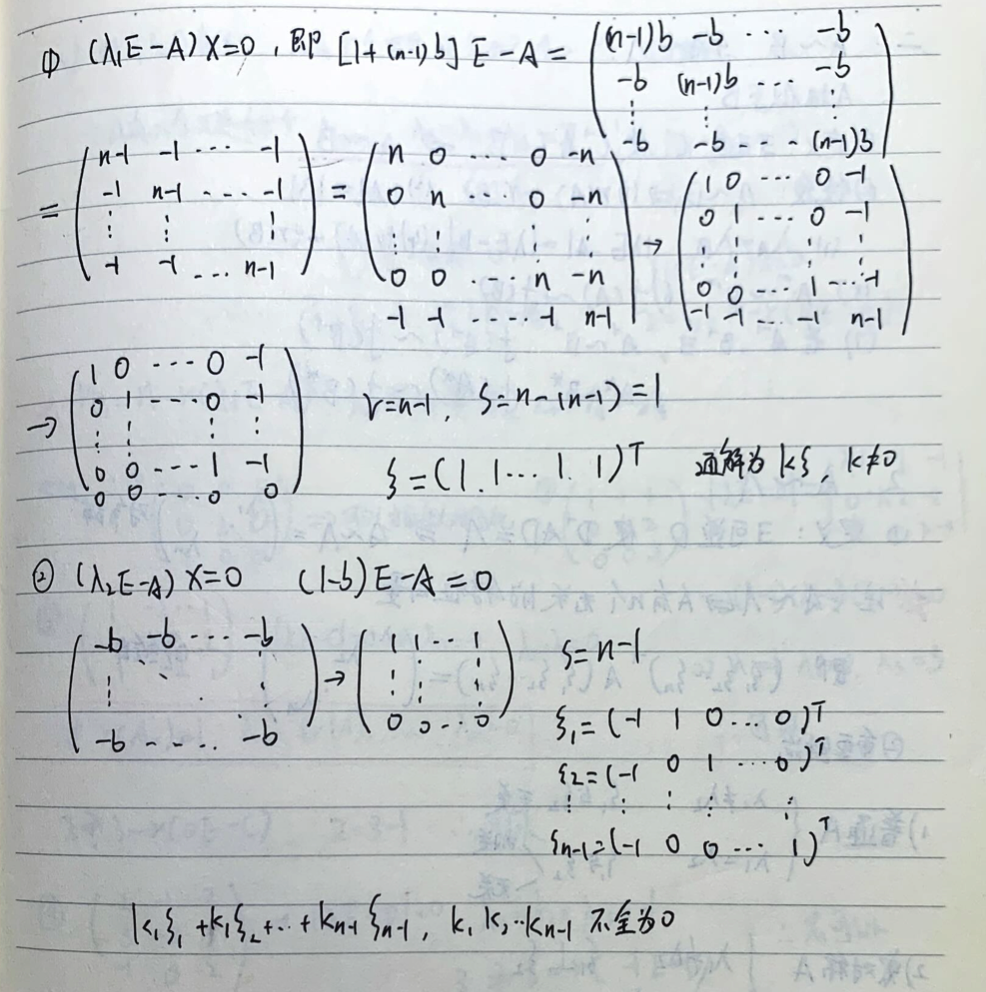 ① (λ₁E-A)X=0, 即 [1+(n-1)b]E-A = ( (n-1)b -b ⋯ -b
-b (n-1)b ⋯ -b
⋮ ⋮ ⋮
-b -b ⋯ (n-1)b )
= ( n-1 -1 ⋯ -1
-1 n-1 ⋯ -1
⋮ ⋮ ⋮
-1 -1 ⋯ n-1 )
= ( n 0 ⋯ 0 -n
0 n ⋯ 0 -n
⋮ ⋮ ⋮ ⋮
0 0 ⋯ n -n
-1 -1 ⋯ -1 n-1 )
→ ( 1 0 ⋯ 0 -1
0 1 ⋯ 0 -1
⋮ ⋮ ⋮ ⋮
0 0 ⋯ 1 ⋯ -1
-1 -1 ⋯ -1 n-1 )
→ ( 1 0 ⋯ 0 -1
0 1 ⋯ 0 -1
⋮ ⋮ ⋮ ⋮
0 0 ⋯ 1 -1
0 0 ⋯ 0 0 )
r=n-1, S=n-(n-1)=1
ξ=(1 1 ⋯ 1 1)ᵀ 通解为 kξ, k≠0
② (λ₂E-A)X=0 (1-b)E-A=0
( -b -b ⋯ -b
⋮ ⋱ ⋮
-b ⋯ -b )
→ ( 1 1 ⋯ 1
⋮ ⋮ ⋮
0 0 ⋯ 0 )
S=n-1
ξ₁=(-1 1 0 ⋯ 0)ᵀ
ξ₂=(-1 0 1 ⋯ 0)ᵀ
⋮ ⋮ ⋮ ⋮ ⋮
ξn-1=(-1 0 0 ⋯ 1)ᵀ
k₁ξ₁+k₁ξ₂+⋯+kn-1ξn-1, k₁ k₂⋯kn-1 不全为0